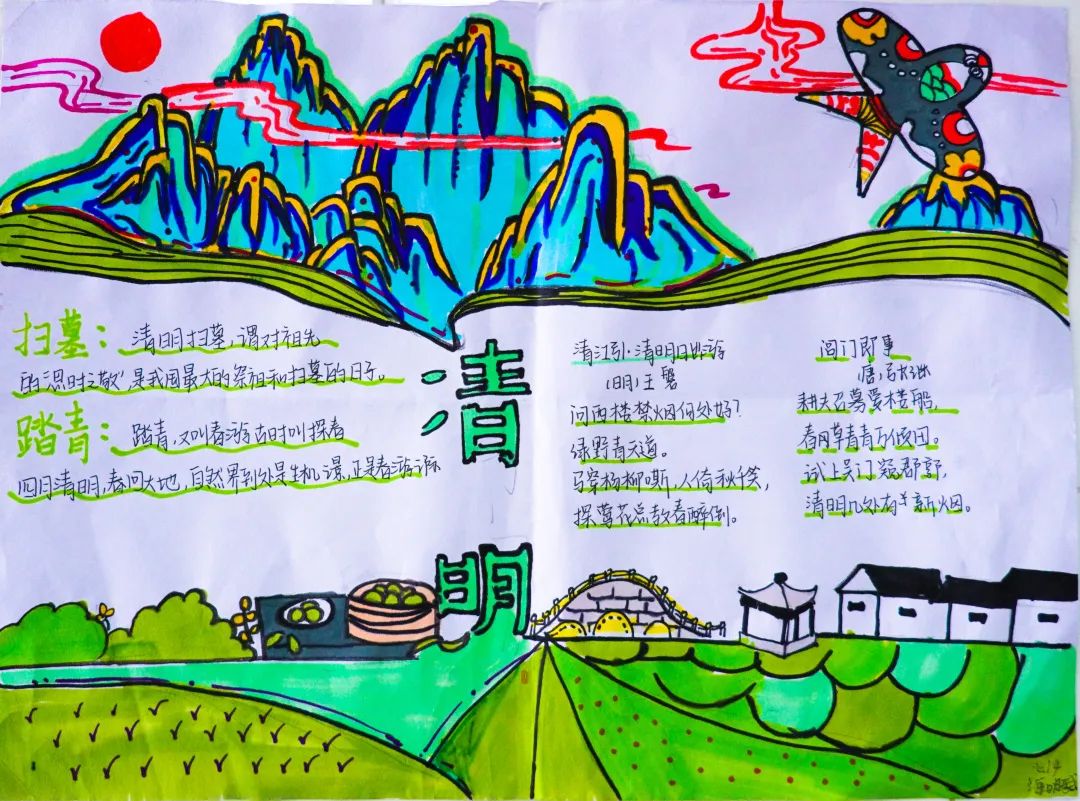 扫墓：清明扫墓，谓对祖先
的"思时之敬"是我国最大的祭祖和扫墓的日子。
踏青：踏青，又叫春游古时叫探春
四月清明，春回大地，自然界到处是生机 景，正是春游
清明
清江引·清明日出游
（明）王磐
问西楼禁烟何处好？
绿野青天道。
马穿杨柳嘶，人倚秋千笑，
探莺花总教春醉倒。
阊门即事
（唐）张继
耕夫召募爱楼船，
春 草青青万倾田。
试上吴门窥郡郭，
清明几处有新烟。